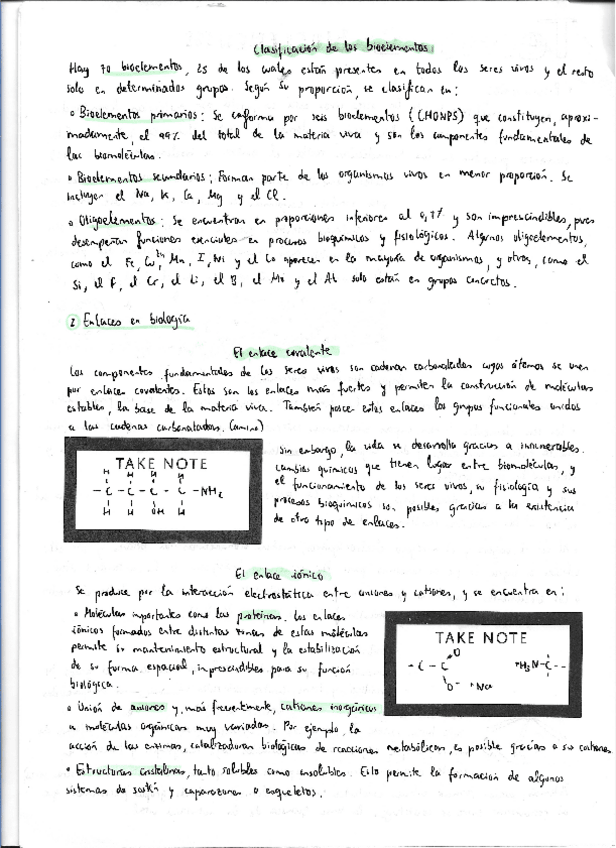 Clasificación de los bioelementos
Hay 70 bioelementos, 25 de los cuales están presentes en todos los seres vivos y el resto
solo en determinados grupos. Según su proporción, se clasifican en:
• Bioelementos primarios: Se conforma por seis bioelementos (CHONPS) que constituyen, aproxi-
madamente, el 99% del total de la materia viva y son los componentes fundamentales de
las biomoléculas.
• Bioelementos secundarios: Forman parte de los organismos vivos en menor proporción. Se
incluyen el Na, K, Ca, Mg y el Cl.
• Oligoelementos: Se encuentran en proporciones inferiores al 0,1% y son imprescindibles, pues
desempeñan funciones esenciales en procesos bioquímicos y fisiológicos. Algunos oligoelementos,
como el Fe, Cu, Zn, Mn, I, Ni y el Co aparecen en la mayoría de organismos, y otros, como el
Si, el F, el Cr, el Li, el B, el Mo y el Al solo están en grupos concretos.
2 Enlaces en biología
El enlace covalente
Los componentes fundamentales de los seres vivos son cadenas carbonatadas cuyos átomos se unen
por enlaces covalentes. Estos son los enlaces más fuertes y permiten la construcción de moléculas
estables, la base de la materia viva. También poseen estos enlaces los grupos funcionales unidos
a las cadenas carbonatadas. (amino)
TAKE NOTE
H H H H
- C - C - C - C - NH2
H H OH H
Sin embargo, la vida se desarrolla gracias a innumerables
cambios químicos que tienen lugar entre biomoléculas, y
el funcionamiento de los seres vivos, su fisiología y sus
procesos bioquímicos son posibles gracias a la existencia
de otro tipo de enlaces.
El enlace iónico
Se produce por la interacción electrostática entre aniones y cationes, y se encuentra en:
• Moléculas importantes como las proteínas. Los enlaces
iónicos formados entre distintas zonas de estas moléculas
permite su mantenimiento estructural y la estabilización
de su forma espacial, imprescindibles para su función
biológica.
TAKE NOTE
O
- C - C +H3N - C - -
O- +Na
• Unión de aniones y, más frecuentemente, cationes inorgánicos
a moléculas orgánicas muy variadas. Por ejemplo, la
acción de las enzimas, catalizadoras biológicas de reacciones metabólicas, es posible gracias a su cationes.
• Estructuras cristalinas, tanto solubles como insolubles. Esto permite la formación de algunos
sistemas de sostén y caparazones o esqueletos.